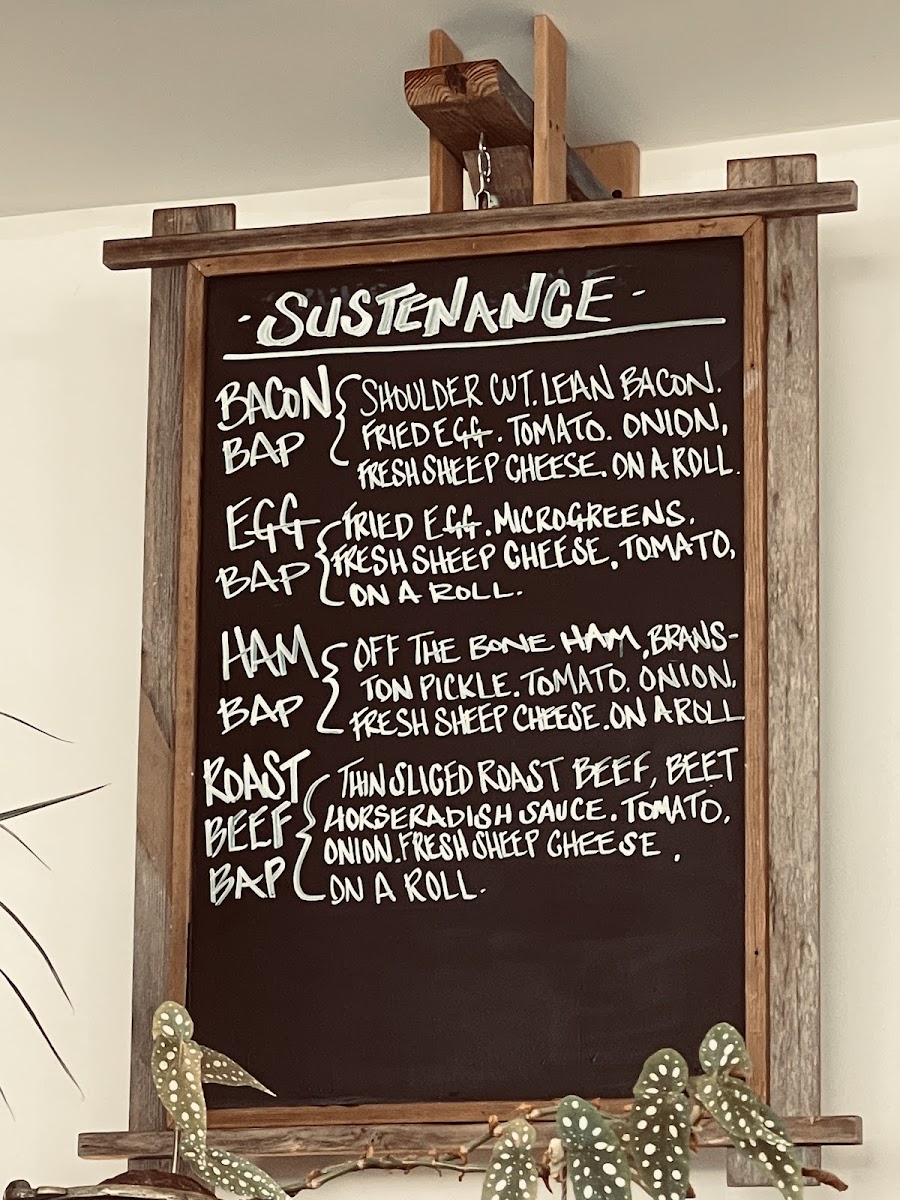 - SUSTENANCE -
BACON BAP { SHOULDER CUT. LEAN BACON.
FRIED EGG. TOMATO. ONION,
FRESH SHEEP CHEESE. ON A ROLL.
EGG BAP { FRIED EGG. MICROGREENS.
FRESH SHEEP CHEESE, TOMATO,
ON A ROLL.
HAM BAP { OFF THE BONE HAM, BRANS-
TON PICKLE. TOMATO. ONION,
FRESH SHEEP CHEESE. ON A ROLL
ROAST BEEF BAP { THIN SLICED ROAST BEEF, BEET
HORSERADISH SAUCE. TOMATO,
ONION. FRESH SHEEP CHEESE.
ON A ROLL.